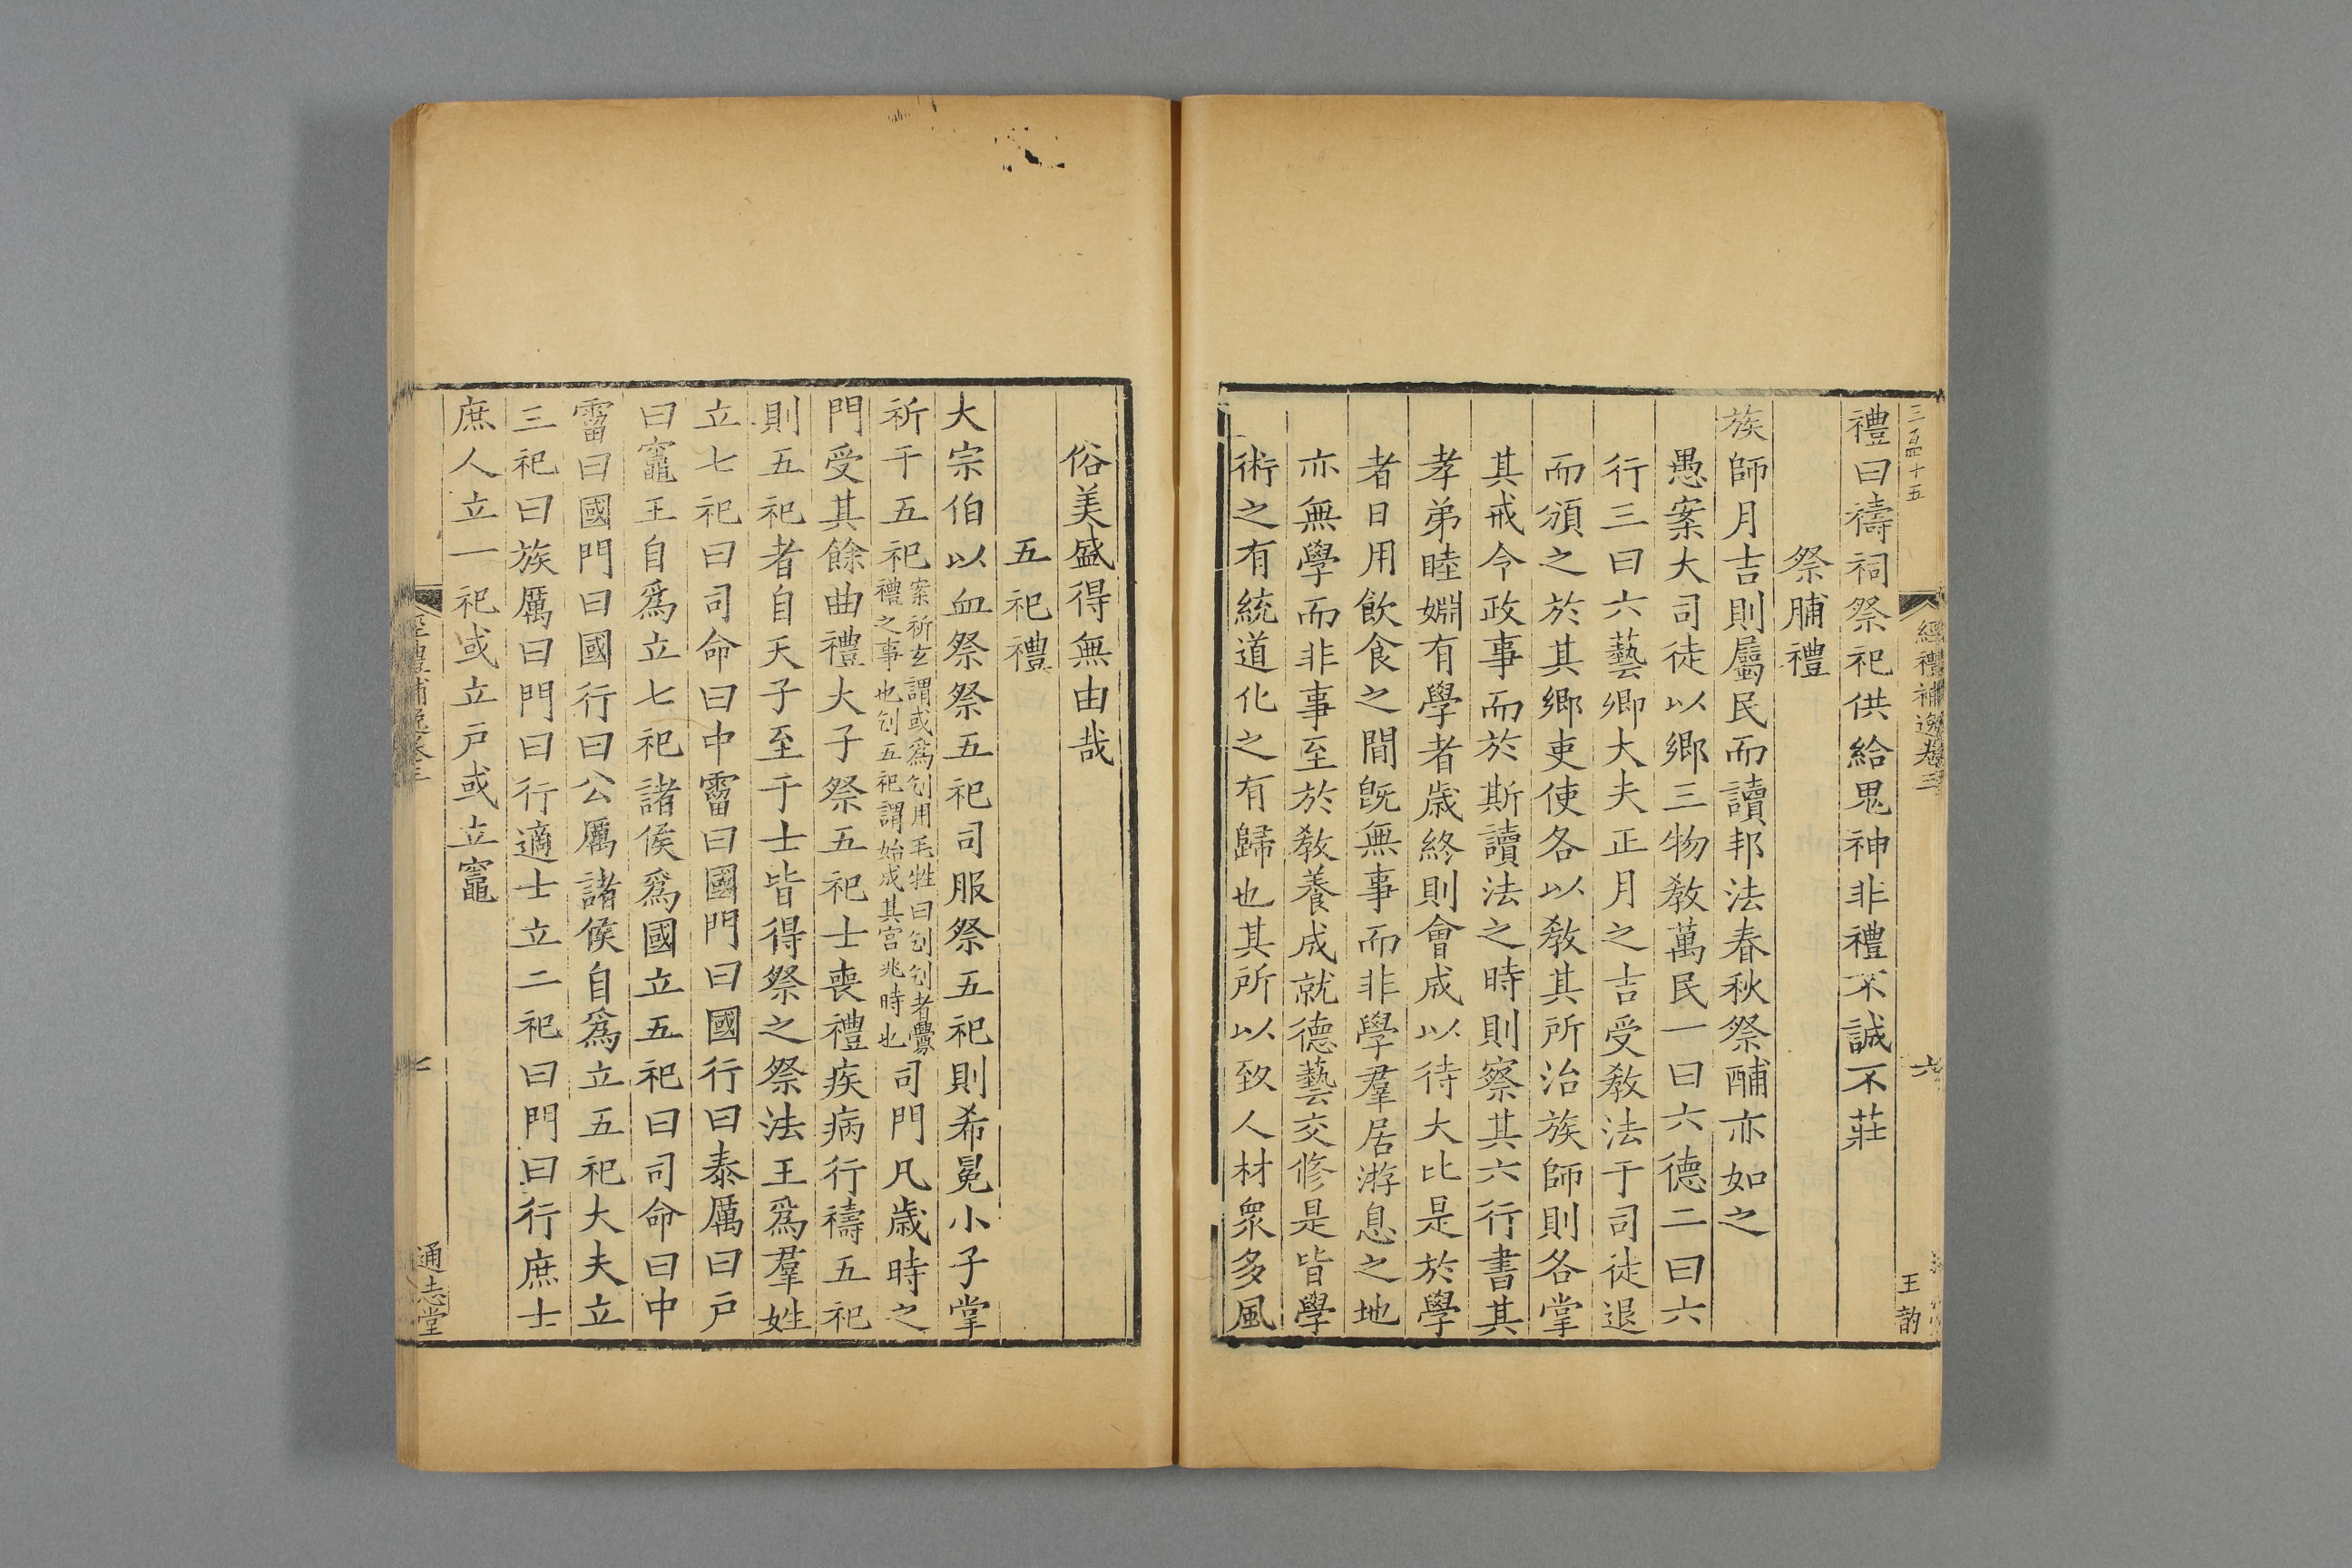 三百四十五
經禮補逸卷三
六
王韵
禮曰禱祠祭祀供給鬼神非禮不誠不莊
祭脯禮
族師月吉則屬民而讀邦法春秋祭酺亦如之
愚案大司徒以鄉三物敎萬民一曰六德二曰六
行三曰六藝鄉大夫正月之吉受敎法于司徒退
而頒之於其鄉吏使各以敎其所治族師則各掌
其戒令政事而於斯讀法之時則察其六行書其
孝弟睦婣有學者歲終則會成以待大比是於學
者日用飲食之間旣無事而非學羣居游息之地
亦無學而非事至於敎養成就德藝交修是皆學
術之有統道化之有歸也其所以致人材衆多風
俗美盛得無由哉
五祀禮
大宗伯以血祭祭五祀司服祭五祀則希冕小子掌
祈于五祀案祈玄謂或爲刉用毛牲曰刉刉者釁禮之事也刉五祀謂始成其宮兆時也司門凡歲時之
門受其餘曲禮大子祭五祀士喪禮疾病行禱五祀
則五祀者自天子至于士皆得祭之祭法王爲羣姓
立七祀曰司命曰中霤曰國門曰國行曰泰厲曰戸
曰竈王自爲立七祀諸侯爲國立五祀曰司命曰中
霤曰國門曰國行曰公厲諸侯自爲立五祀大夫立
三祀曰族厲曰門曰行適士立二祀曰門曰行庶士
庶人立一祀或立戸或立竈
經禮補逸卷三
七
通志堂